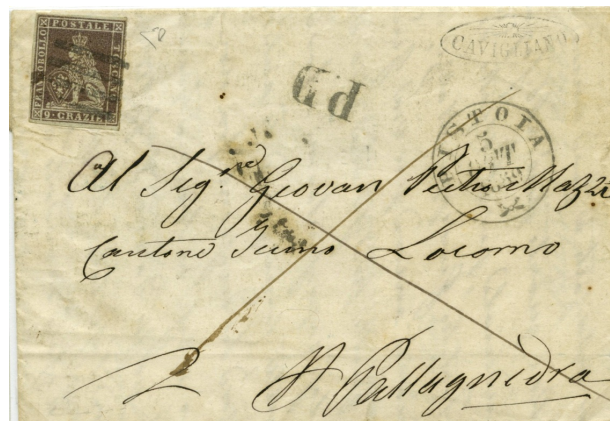 FRANCOBOLLO POSTALE TOSCANO
9. CRAZIE
CAVIGLIANO
P.D
PISTOIA
5
Al Sig.re Giovan Pietro Mazzi
Cantone Locorno
Pallagnedra